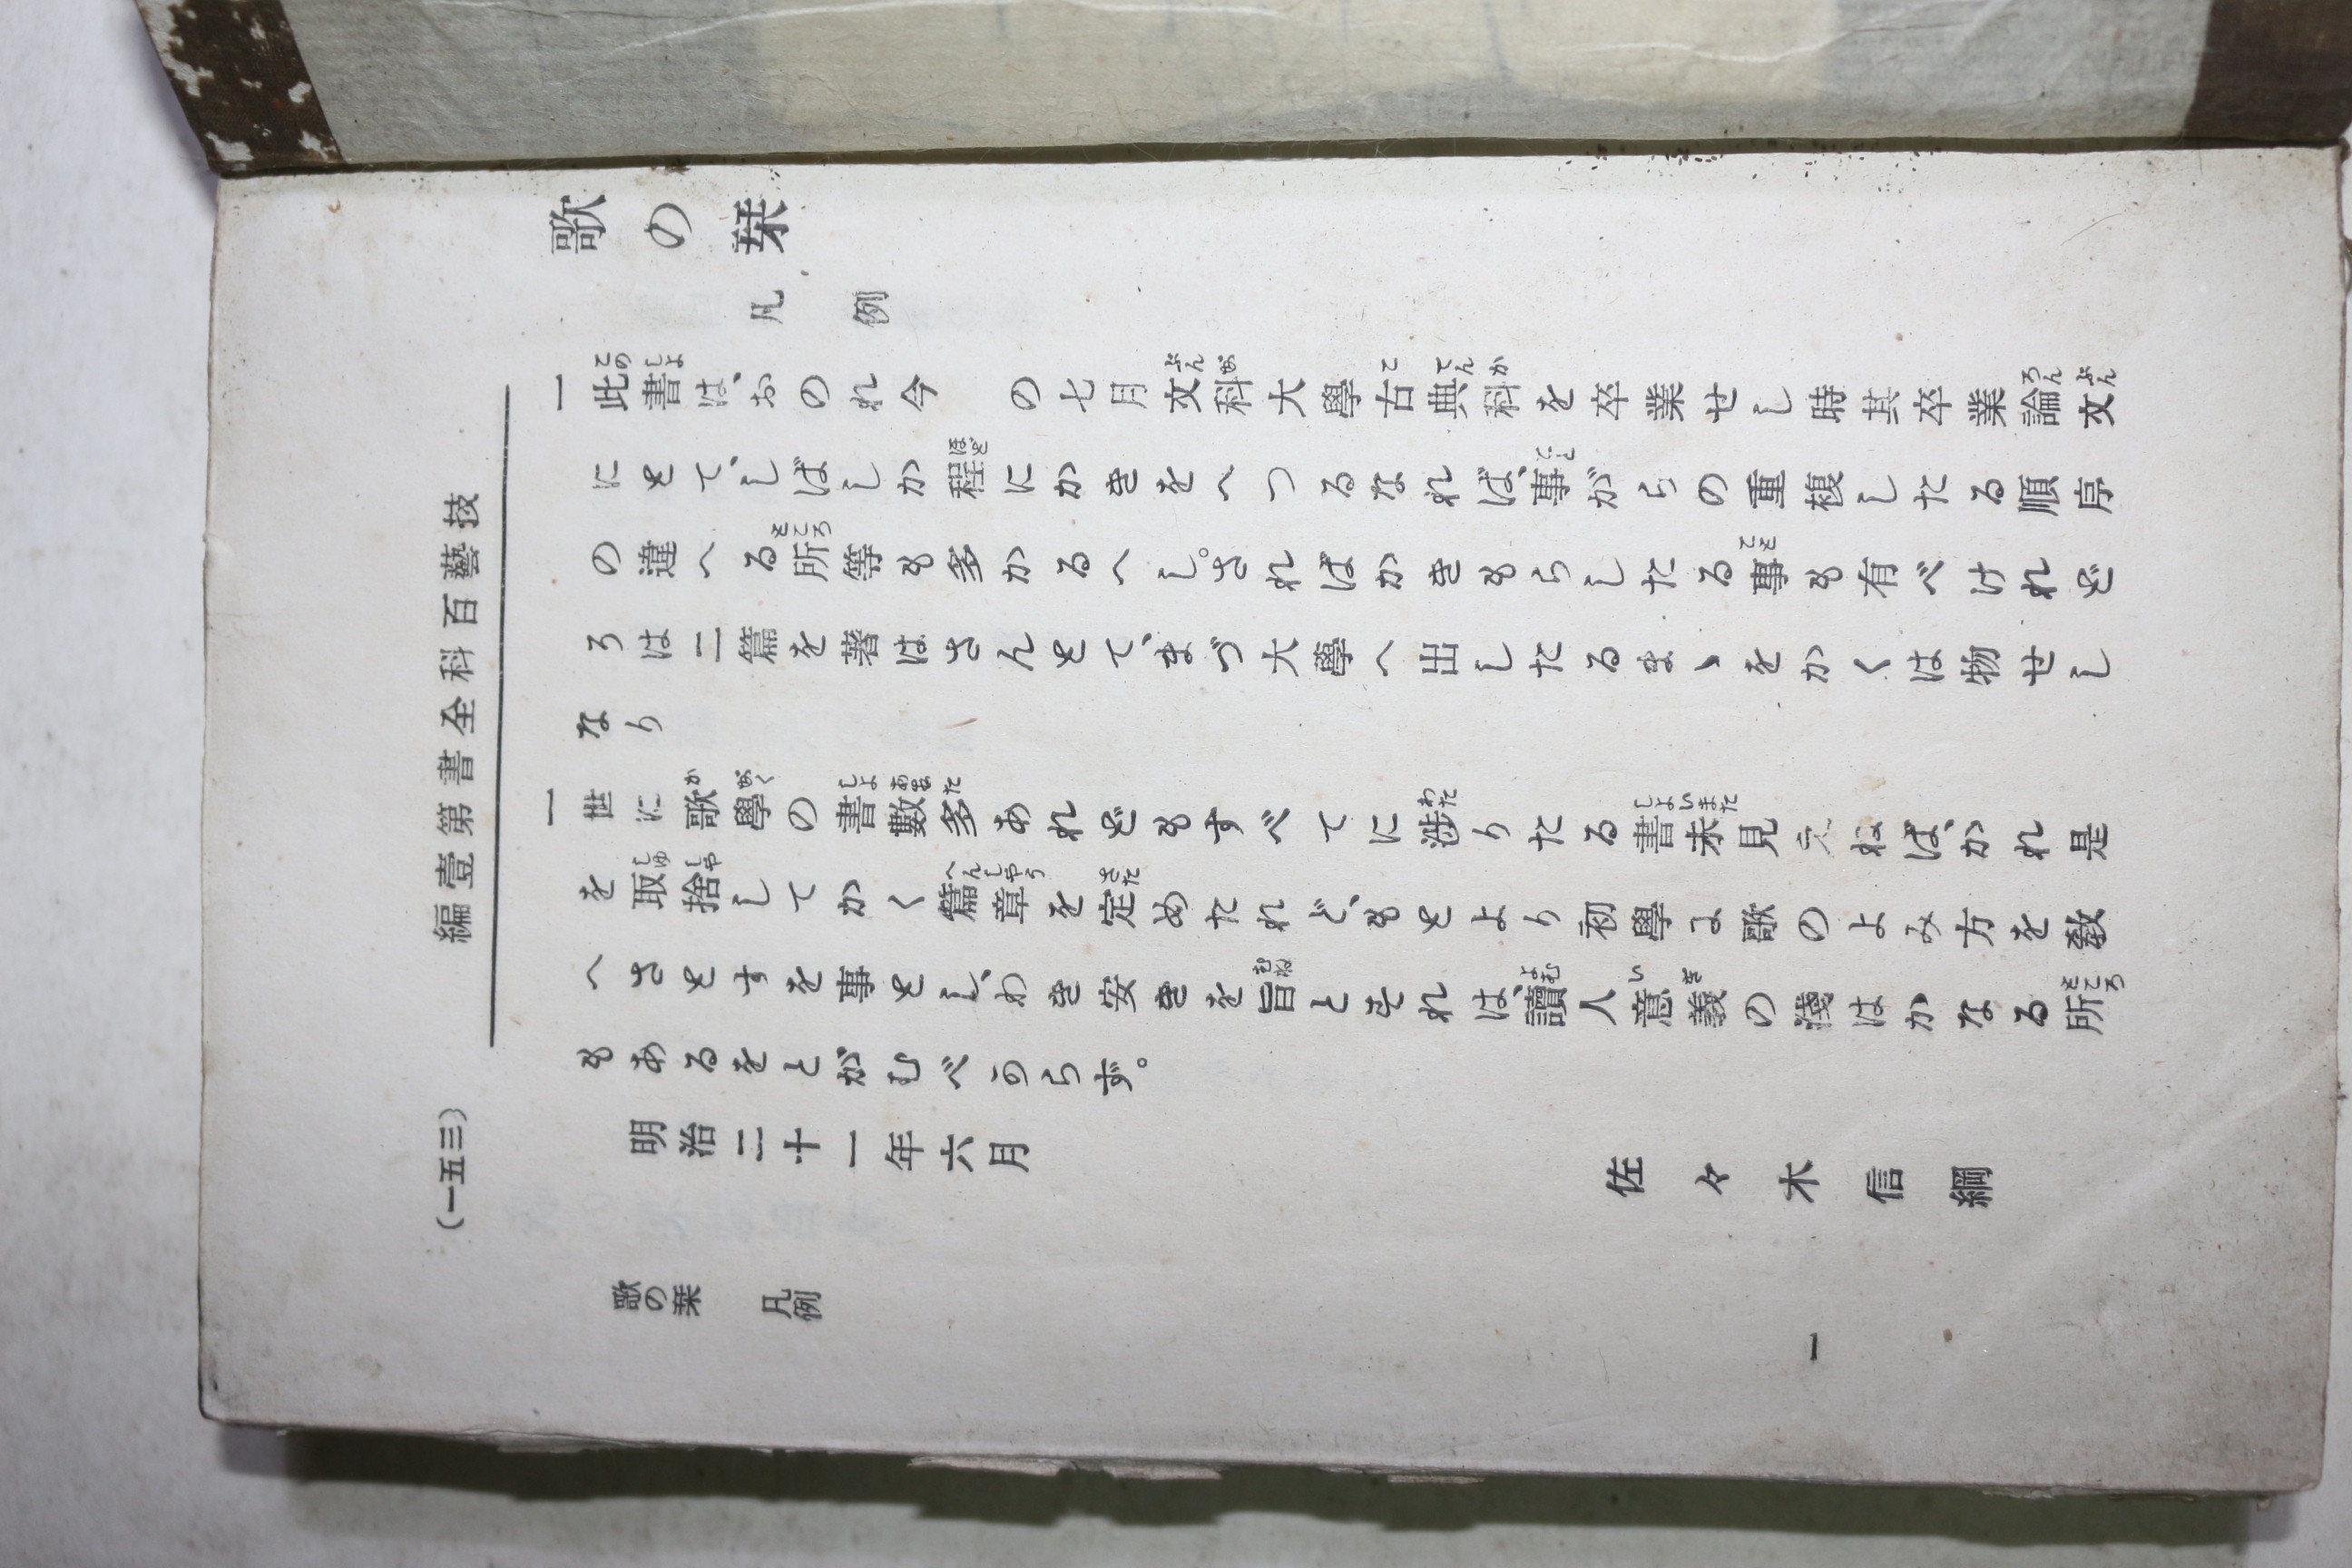 技藝百科全書第壹編
(三五一)
歌の栞
凡例
一此書は、おのれ今　の七月文科大學古典科を卒業せし時其卒業論文
にとて、しばしか程にかきをへつるなれば、事がらの重複したる順序
の違へる所等も多かるへし。さればかきもらしたる事も有べけれど
ろは二篇を著はさんとて、まづ大學へ出したるまゝをかくは物せし
なり
一世に歌學の書數多あれどもすべてに渉りたる書未見えねば、かれ是
を取捨してかく篇章を定めたれど、もとより初學に歌のよみ方を敎
へさとすを事とし、わき安きを旨とすれは、讀人意義の淺はかなる所
もあるをとがむべからず。
明治二十一年六月
佐々木信綱
歌の栞　凡例
一